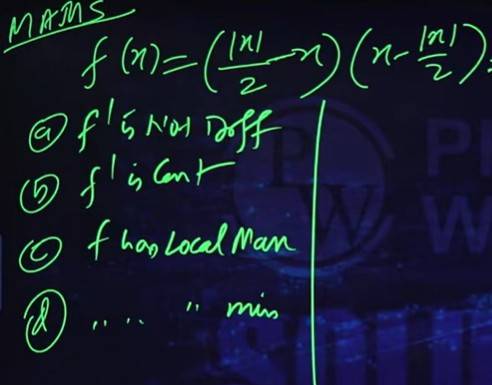 MAMS
f(x)=(|x|/2 - x)(x - |x|/2)
(a) f' is Not Diff
(b) f' is Cont
(c) f has Local Max
(d) " " " min
PW